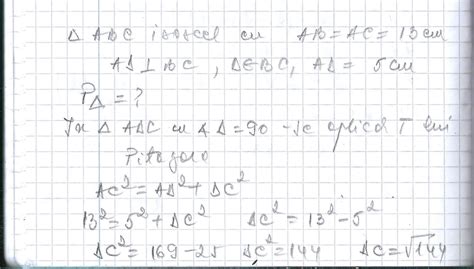 Δ ABC isoscel cu AB=AC=13cm
AD⊥BC, D∈BC, AD=5cm
P△=?
În Δ ADC cu ∢D=90 -se aplică T lui
Pitagora
AC²=AD²+DC²
13²=5²+DC² DC²=13²-5²
DC²=169-25 DC²=144 DC=√144